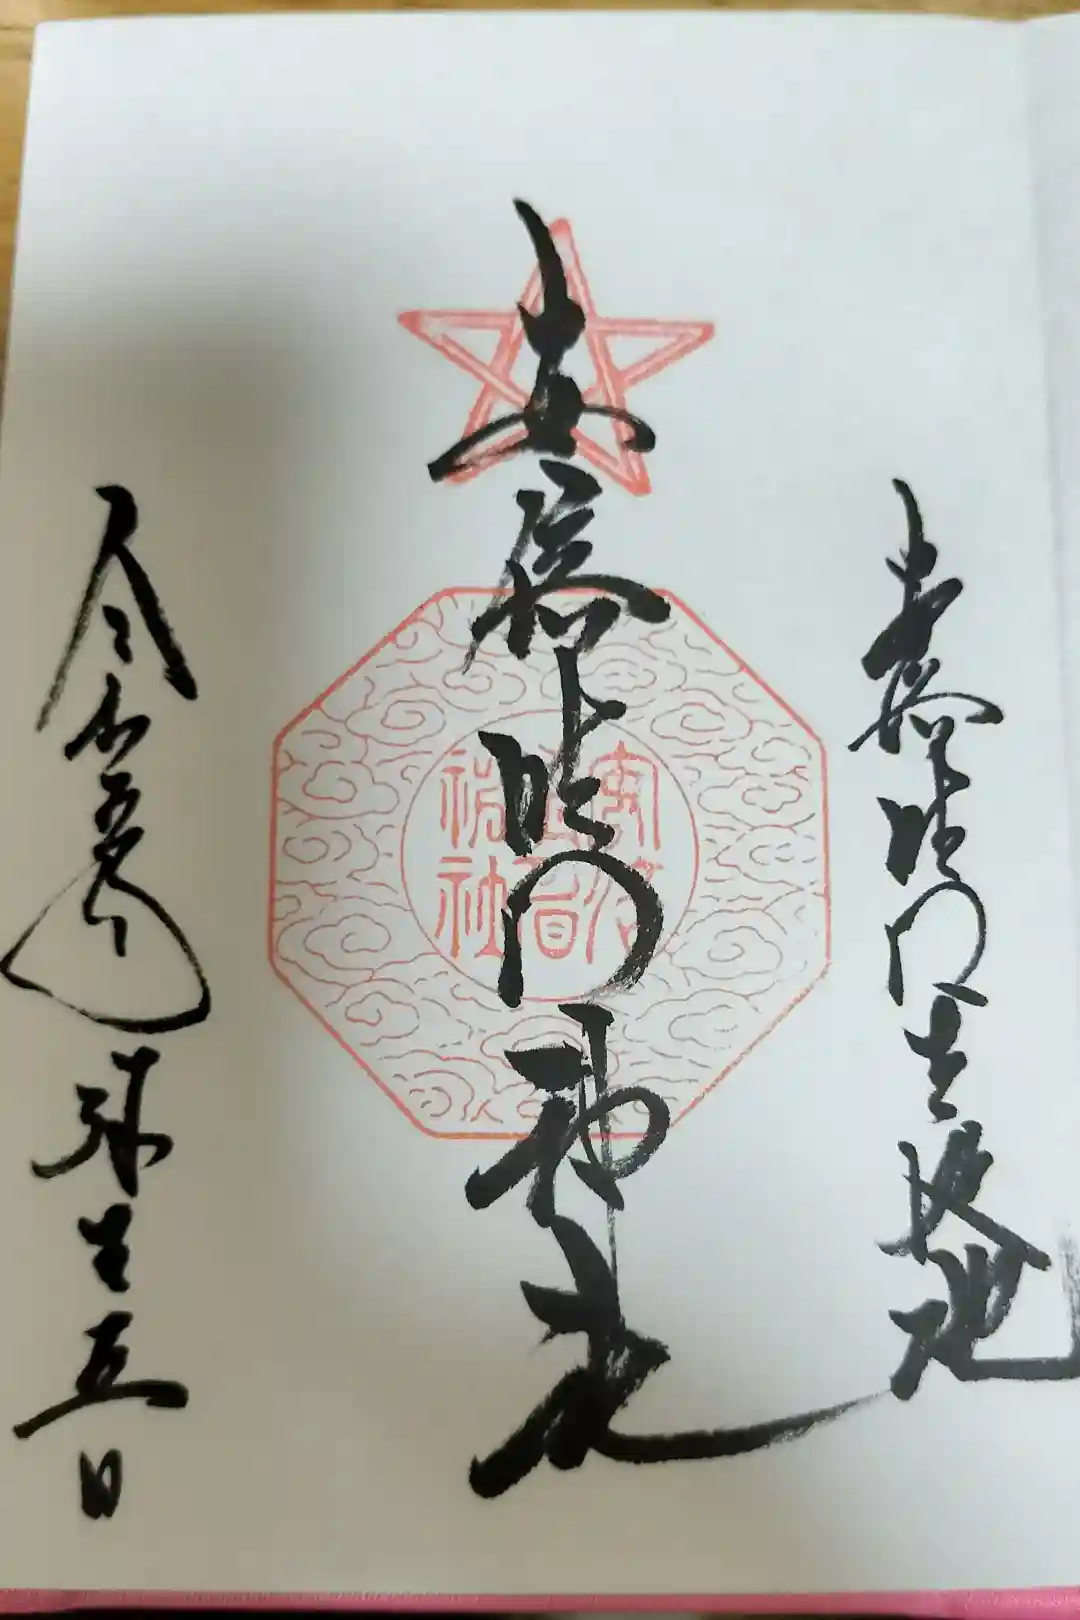 安倍晴明生誕地
安倍晴明神社
安倍晴明神社
令和五年弥生五日